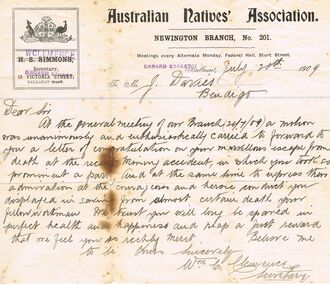 Australian Natives' Association.
NEWINGTON BRANCH, No. 201.
Meetings every Alternate Monday, Federal Hall, Sturt Street.
W. CLEMENCE
H. S. SIMMONS,
Secretary,
15 VICTORIA STREET,
BALLARAT EAST.
ERRARD STREET
Ballarat, July 29th 1909
To Mr. J. Davies
Bendigo
Dear Sir
At the general meeting of our Branch 26/7/09 a motion
was unanimously and enthusiastically carried to forward to
you a letter of congratulation on your marvellous escape from
death at the recent Mining accident, in which you took so
prominent a part. And at the same time to express their
admiration at the courageous and heroic conduct you
displayed in saving from almost certain death your
fellow workman. We trust you will long be spared in
perfect health and happiness and reap a just reward
that we feel you so richly merit. Believe me
to be Yours Sincerely
Wm C Clemence
Secretary